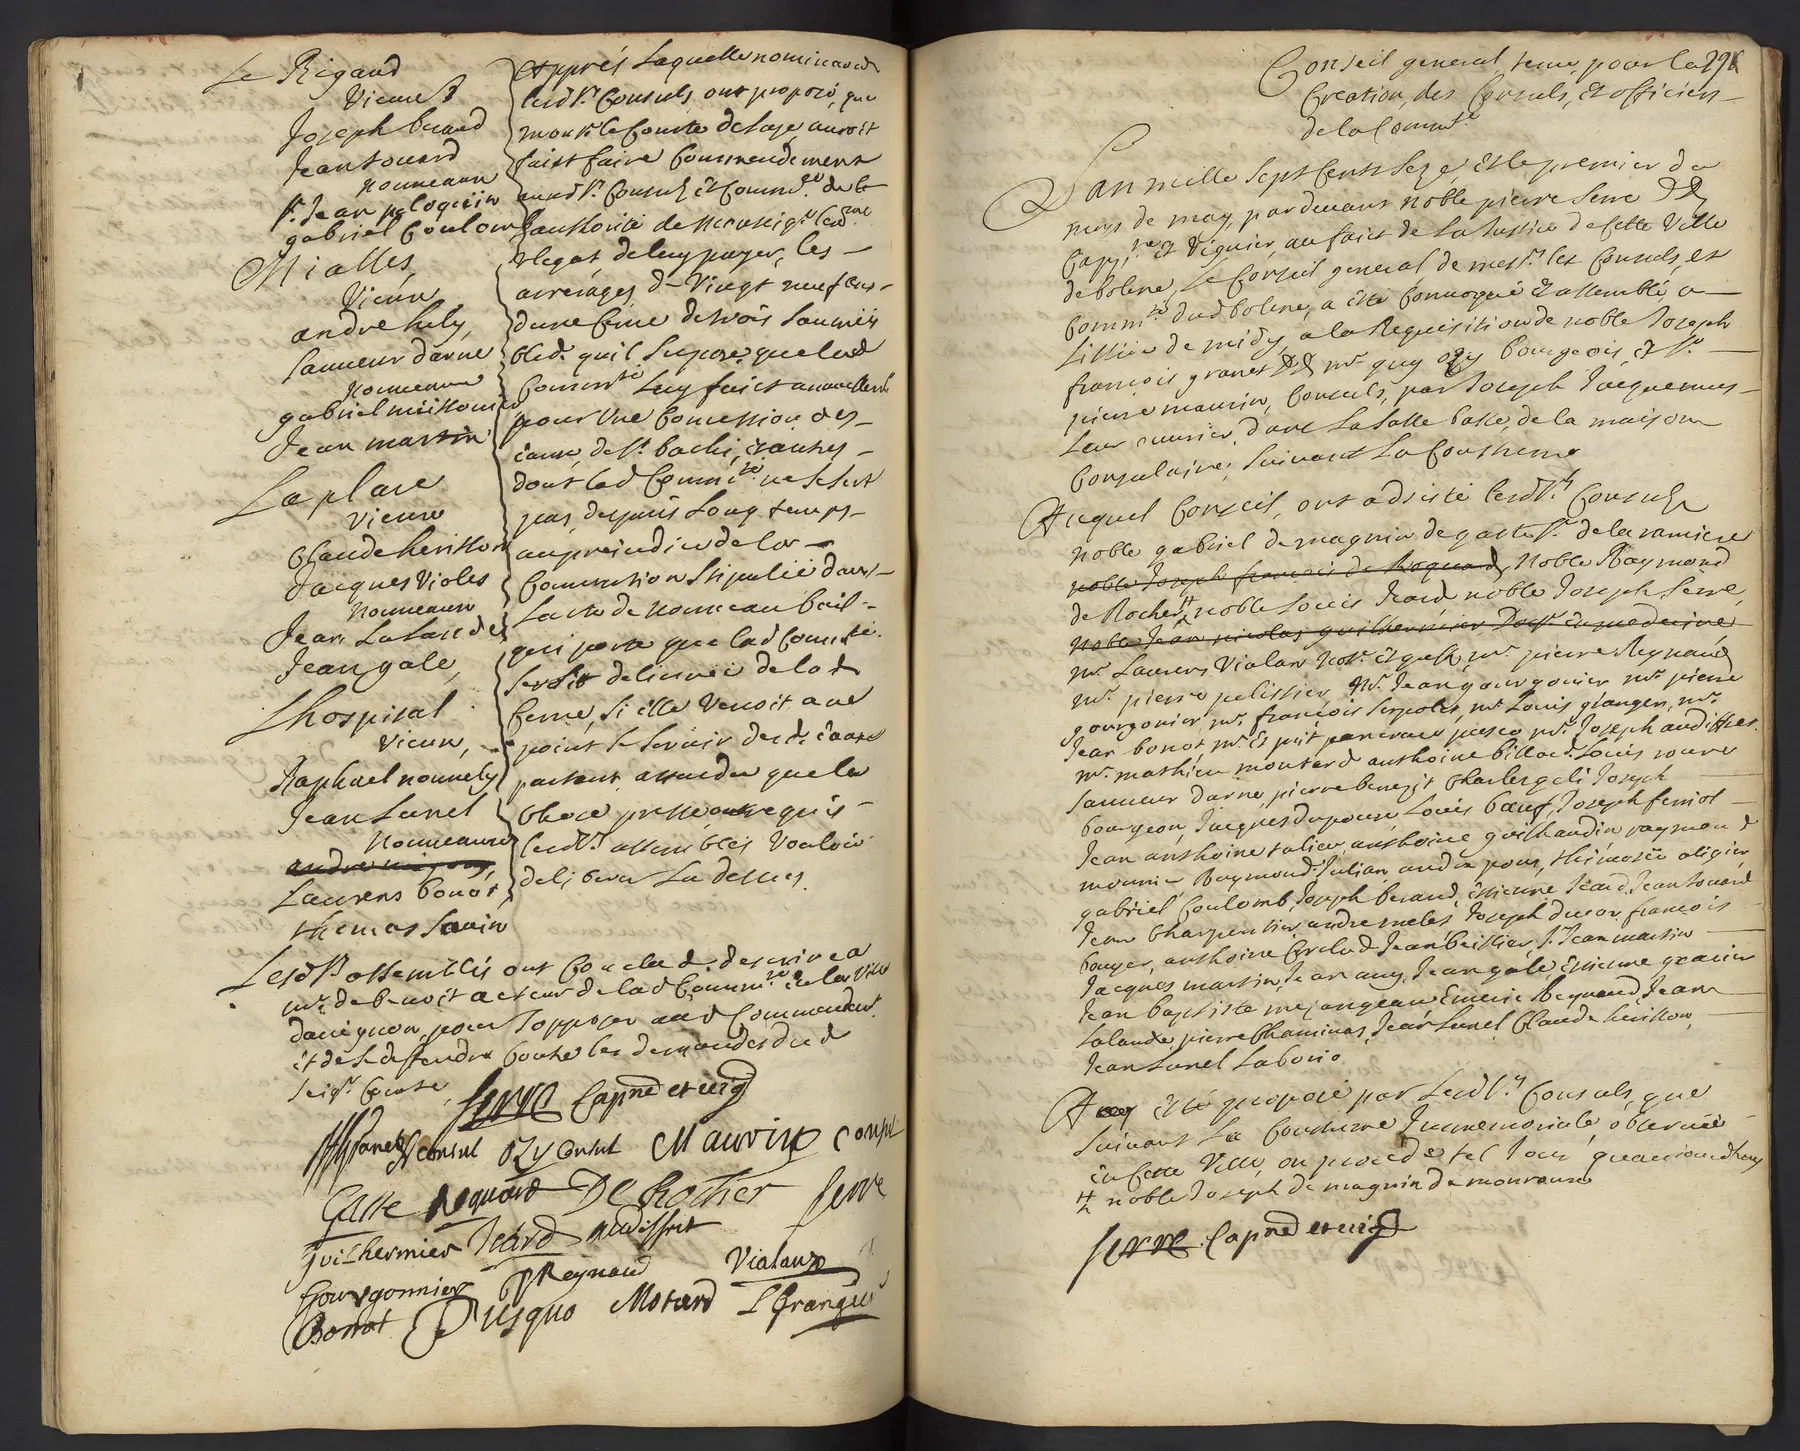 Le Rigaud
Vieux
Joseph beraud
Jean Touard
nouveaux
Sr. Jean peloquin
gabriel Coulomb
Mialles,
Vieux
andre hely,
Sauveur darne
nouveaux
gabriel meissonier
Jean martin
La place
vieux
Claude herisson
Jacques Violes
nouveaux
Jean Lalande
Jean gale,
Lhospital
vieux,
Raphael nouvely
Jean Lunel
nouveaux
Laurens bonot,
thomas Savin
Appres Laquelle nomination
lesd. srs. Consuls ont proposé, que
monsr. le Comte de Suze auroit
faict faire Commendement
auxd. srs. Consuls et Commté. de lad.
authorité de monseigr.
vlegat de luy payer, les
arreiages de Vingt neuf ens
dune Cense de trois Saumées
bled. quil Supose que lad.
Commté. Luy faict annuellemt.
pour Une Concession des
eaux, de St. bachi, et autres
dont lad. Commté. ne se sert
pas, despuis Long temps
au prejudice de la
Convention Stipulée dans
Lacte de nouveau bail
qui porte que lad. Commté.
seroit delivrée de lad.
Cense, Si elle venoit a ne
point se servir desd. eaux
partant attendu que la
chose presse, ont requis
lesd. srs. assemblés Vouloir
deliberer La dessus.
Lesd. srs. assemblés ont Conclud. descrire a
mr. de benoit acteur de lad. Commté. de la Ville
davignon, pour Sopposer aud. Commendemt.
et de se deffendre Contre les demandes dud.
Seigr. Comte,
Serre Capne et vig
granet Consul Ozy Consul Maurin Consul
Gaste Roquard De Rocher Serre
Guilhermier Icard audiffret
Gourgonnier PReynaud Vialans
Bonnot Pusquo Motard LGranger
Conseil general, tenu, pour la 291
Creation, des Consuls, et officiers
de la Commté.
Lan mille Sept Cents Seze, et le premier du
mois de may, par devant noble pierre Serre
Capne. et Viguier, au faict de La Justice de Cette Ville
de bolene, Le Conseil general de messrs. les Consuls, et
Commté. dud. bolene, a esté Convoqué et assemblé, a
Lissüe de midy, a la Requisition de noble Joseph
françois granet mr. guy ozy bourgeois, et Sr.
pierre maurin, Consuls, par Joseph Jacquemus
Leur courier, dans La Salle basse, de la maison
Consulaire, Suivant La Coustume
Auquel Conseil, ont adsisté lesd. srs. Consuls
noble gabriel de magnin de gaste Sr. de la ramiere
noble Joseph françois de Roquard, Noble Raymond
de Rocher, noble Louis Icard noble Joseph Serre,
noble Jean nicolas guilhermier Doctr. en medecine
mr. Laurens Vialans notre. et greffr, mr. pierre Reynaud
mr. pierre pelissier, mr. Jean gourgonier mr. pierre
gourgonier mr. françois Serpoles, mr. Louis granger, mr.
Jean bonot mr. et prit pancrace pusco mr. Joseph audiffret
mr. mathieu moutard anthoine billard. Louis rouvre
Sauveur darne, pierre benezit Charles geli Joseph
bourgeon, Jacques dupoux, Louis boeuf, Joseph feniol
Jean anthoine talieu, anthoine guilhaudin raymond
mounier Raymond Julian andre pous, thimotée oligier
gabriel Coulomb, Joseph beraud, estienne Icard, Jean Touard
Jean Charpentier, andre meles Joseph ducor, françois
bouyer, anthoine Jean beissier, Sr. Jean martin
Jacques martin, Jean amy, Jean gale, Estienne gravier
Jean baptiste mejangeau Emeric Reynaud, Jean
Lalande, pierre Chaminas, Jean Lunel Claude herisson,
Jean Lunel Laborio
A esté proposé par Lesd. srs. Consuls, que
Suivant La Coustume Jmmemoriale observée
en Cette Ville, on procede tel Jour quaujourdhuy
noble Joseph de magnin de monroux
Serre Capne et vig